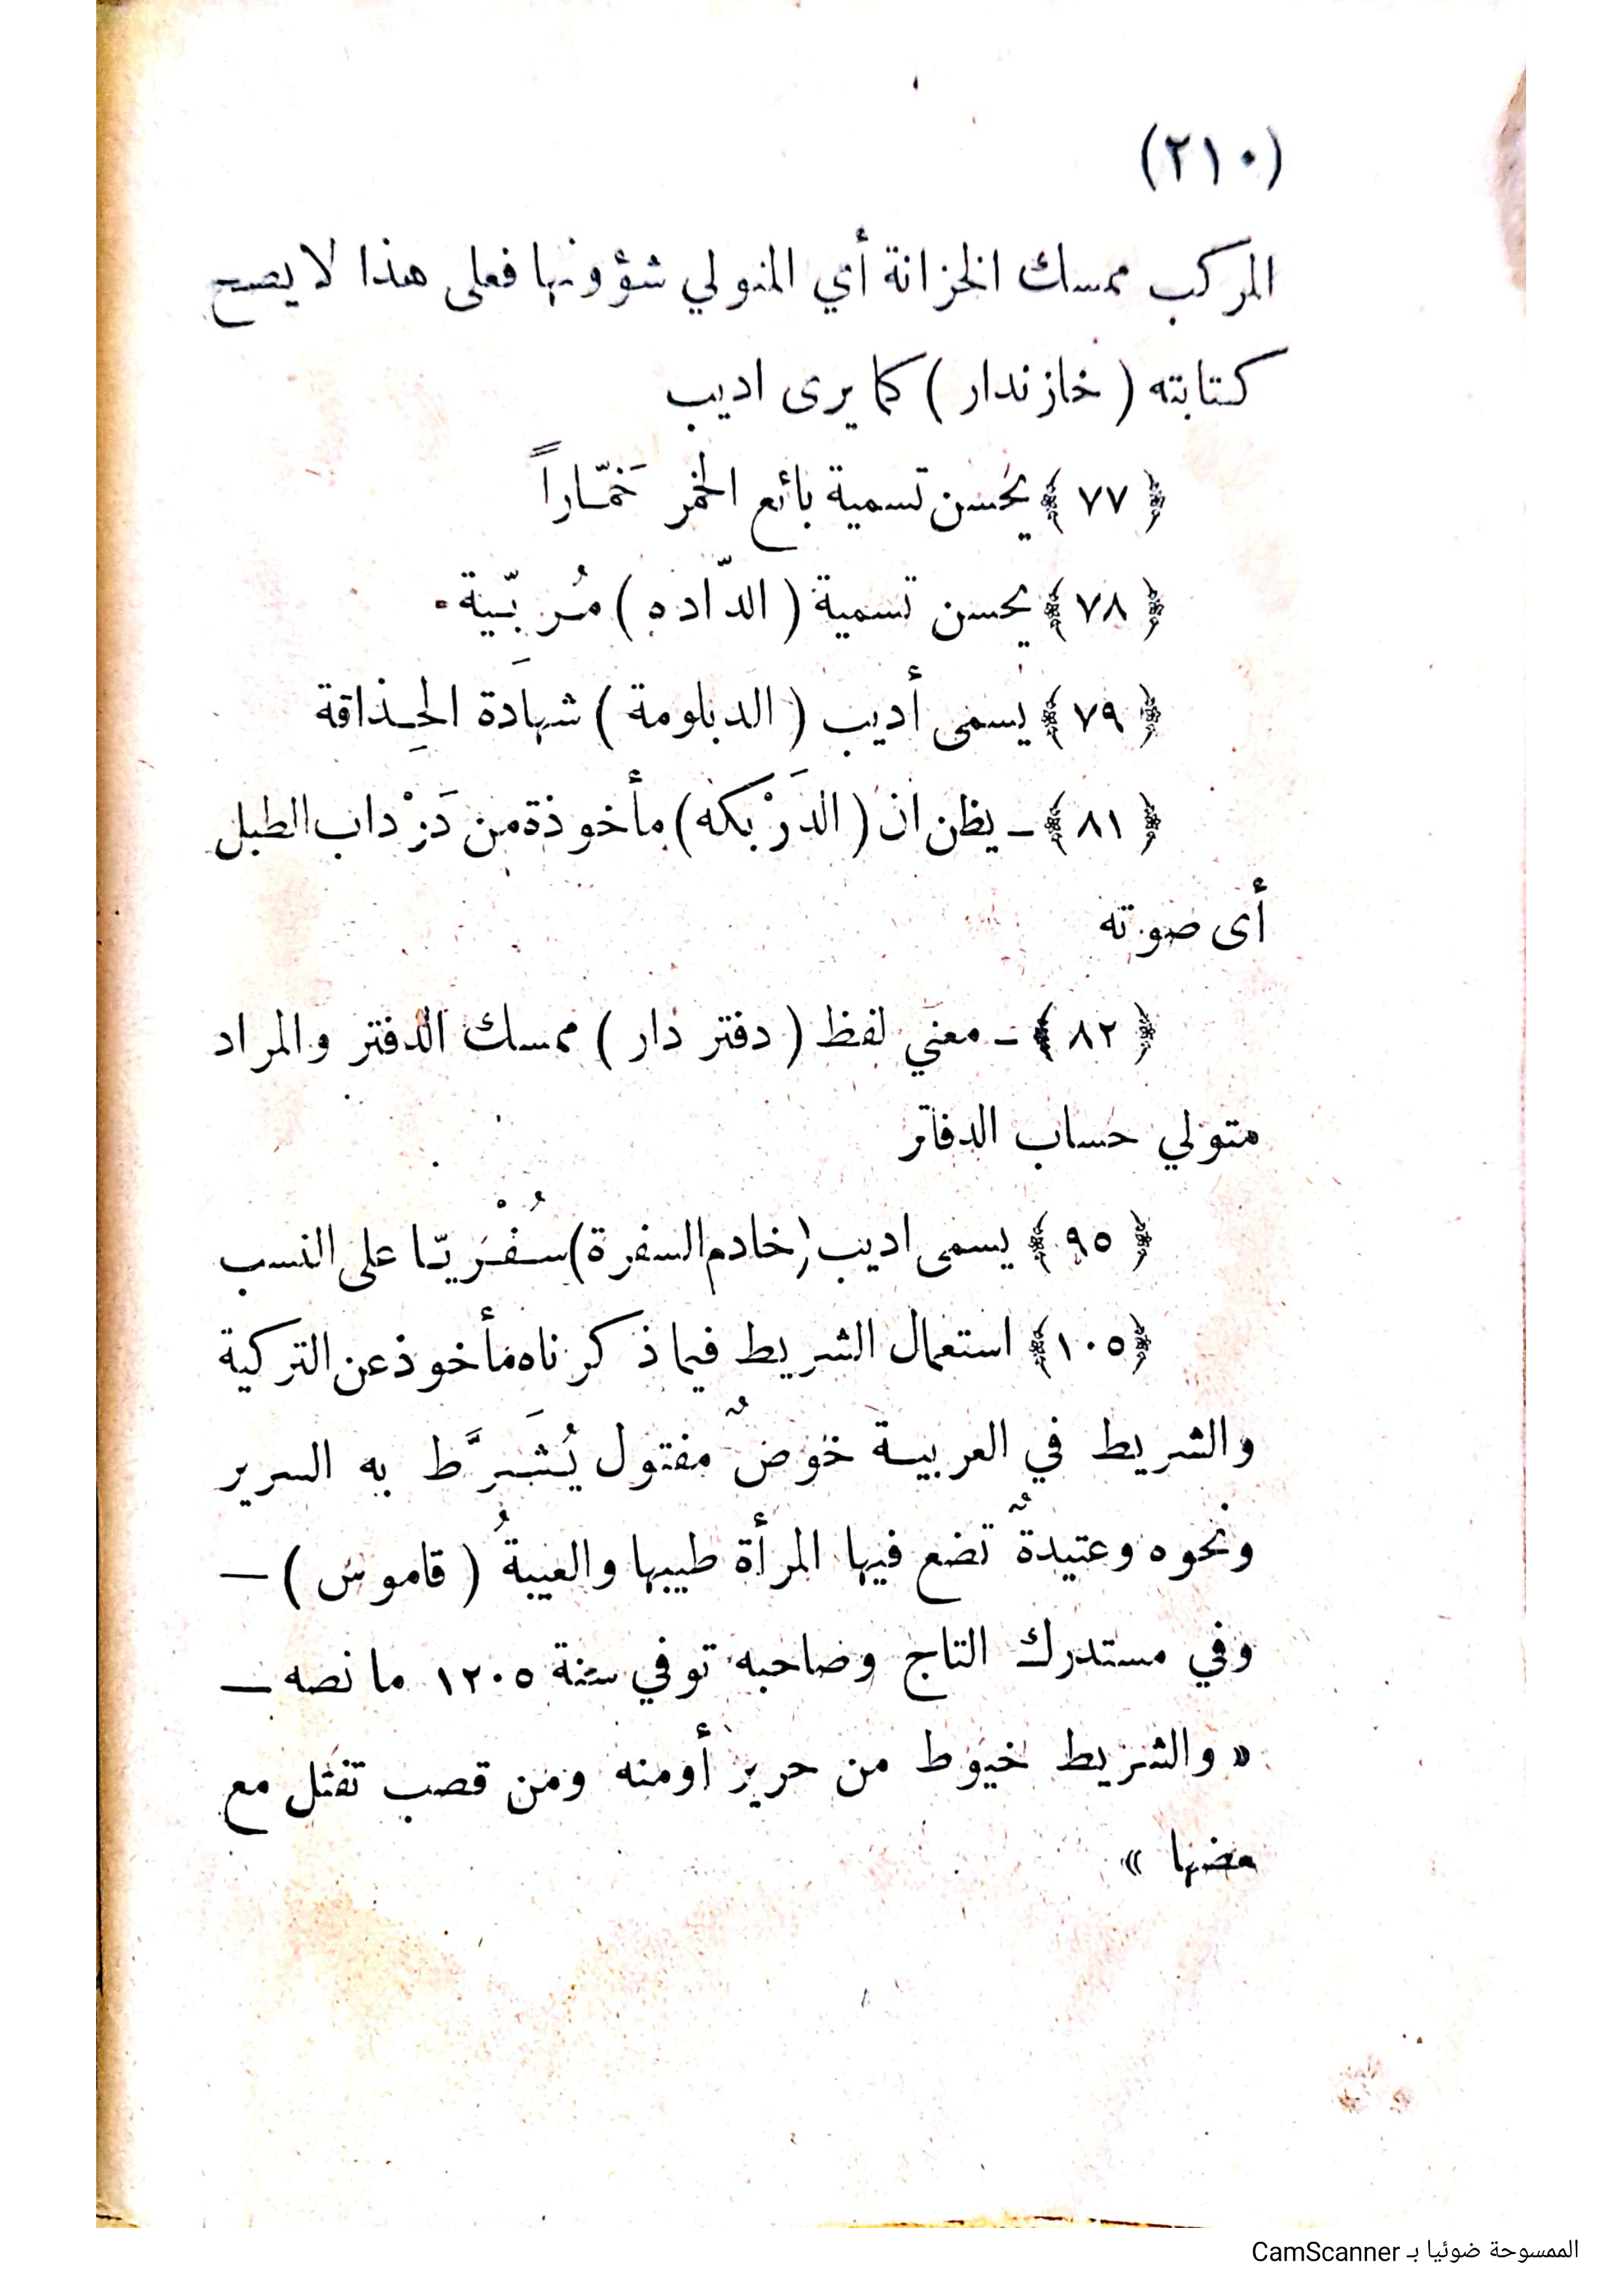 (٢١٠)
المركب ممسك الخزانة أي المتولي شؤونها فعلى هذا لا يصح
كتابته ( خازندار ) كما يرى اديب
﴿ ٧٧ ﴾ يحسن تسمية بائع الخمر خَمّاراً
﴿ ٧٨ ﴾ يحسن تسمية ( الدّاده ) مُربّية .
﴿ ٧٩ ﴾ يسمى أديب ( الدبلومة ) شهادَة الحِذاقة
﴿ ٨١ ﴾ ـ يظن ان ( الدَرْبكه ) مأخوذة من دَرْداب الطبل
أى صوته
﴿ ٨٢ ﴾ ـ معنى لفظ ( دفتر دار ) ممسك الدفتر والمراد
متولي حساب الدفاتر
﴿ ٩٥ ﴾ يسمى اديب ( خادم السفرة ) سُفْريّا على النسب
﴿ ١٠٥ ﴾ استعمال الشريط فيما ذكرناه مأخوذ عن التركية
والشريط في العربية خوصٌ مفتول يُشَرَّط به السرير
ونحوه وعتيدةٌ تضع فيها المرأة طيبها والعيبةُ ( قاموس ) —
وفي مستدرك التاج وصاحبه توفي سنة ١٢٠٥ ما نصه —
« والشريط خيوط من حرير أومنه ومن قصب تفتل مع
بعضها »
الممسوحة ضوئيا بـ CamScanner